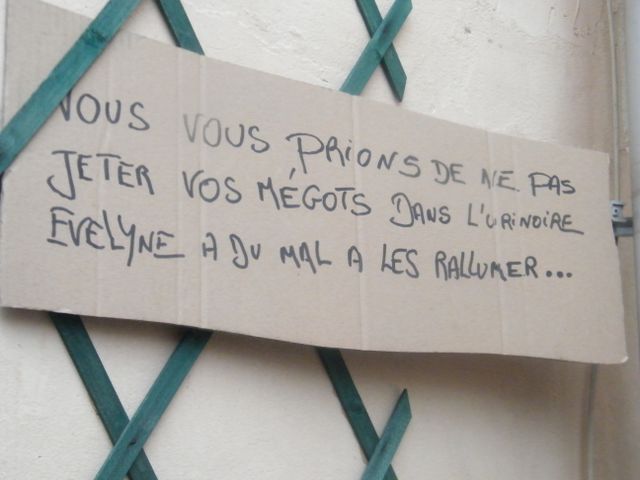 NOUS VOUS PRIONS DE NE PAS
JETER VOS MÉGOTS DANS L'URINOIRE
EVELYNE A DU MAL A LES RALLUMER...